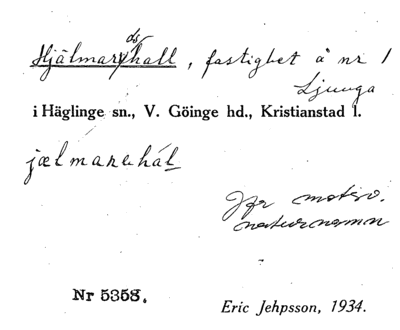 ds
Hjälmarshall, fastighet å nr 1
Ljunga
i Häglinge sn., V. Göinge hd., Kristianstad l.
jælmarehál
Jfr motsv.
naturnamn
Nr 5358.
Eric Jehpsson, 1934.